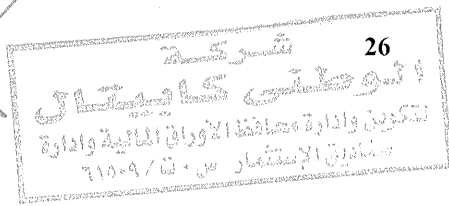 شركة
26
الوطنى كابيتال
لتكوين وإدارة محافظ الأوراق المالية وإدارة
صناديق الإستثمار س.ت/٦١٥٠٩